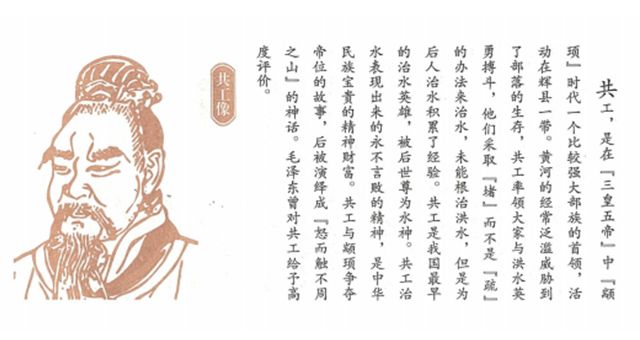 共工，是在『三皇五帝』中『颛
顼』时代一个比较强大部族的首领，活
动在辉县一带。黄河的经常泛滥威胁到
了部落的生存，共工率领大家与洪水英
勇搏斗，他们采取『堵』而不是『疏』
的办法来治水，未能根治洪水，但是为
后人治水积累了经验。共工是我国最早
的治水英雄，被后世尊为水神。共工治
水表现出来的永不言败的精神，是中华
民族宝贵的精神财富。共工与颛顼争夺
帝位的故事，后被演绎成『怒而触不周
之山』的神话。毛泽东曾对共工给予高
度评价。
共工像